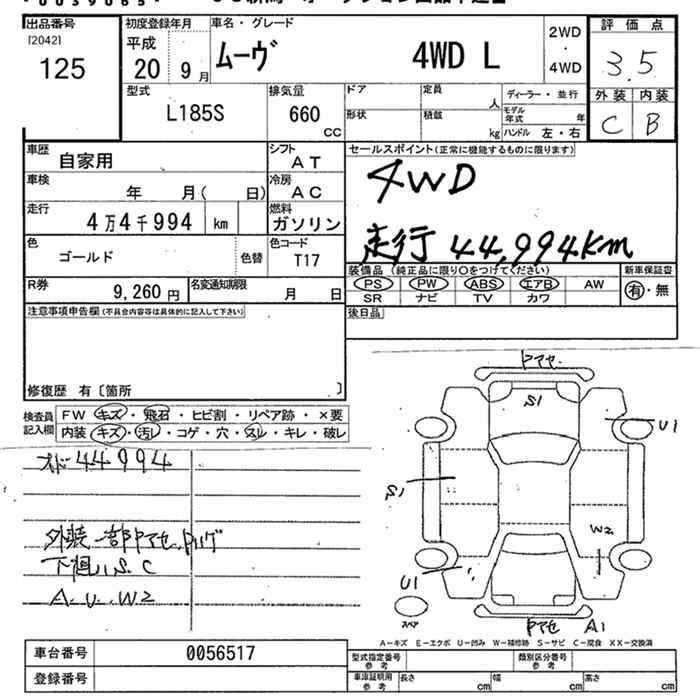 出品番号
[20421]
125
初度登録年月
平成
20 9月
車名・グレード
ムーヴ 4WD L
2WD
・
4WD
評価点
3.5
外装 内装
C B
型式
L185S
排気量
660
CC
ドア
定員
人
ディーラー・並行
形状
積載
kg
モデル年式
年
ハンドル 左・右
車歴
自家用
シフト
AT
車検
年 月( 日)
冷房
AC
走行
4万4千994 km
燃料
ガソリン
色
ゴールド
色替
色コード
T17
R券
9,260円
名変通知期限
月 日
セールスポイント(正常に機能するものに限ります)
4WD
走行 44,994km
装備品 (純正品に限り○をつけてください)
新車保証書
PS PW ABS エアB AW
SR ナビ TV カワ
有・無
後日品
注意事項申告欄(不具合内容等は具体的に記入して下さい)
修復歴 有〔箇所 〕
検査員
記入欄
FW キズ・飛石・ヒビ割・リペア跡・×要
内装 キズ・汚レ・コゲ・穴・スレ・キレ・破レ
44994
外装一部
下廻り S.C
A.U.W2
S1
U1
S1
W2
U1
スペア
A1
A-キズ E-エクボ U-凹み W-補修跡 S-サビ C-腐食 XX-交換済
車台番号
0056517
登録番号
型式指定番号
参考
類別区分番号
参考
車庫証明用
参考
長さ cm
幅 cm
高さ cm